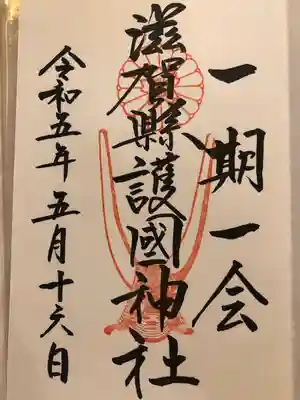 一期一会
滋賀縣護國神社
令和五年五月十六日